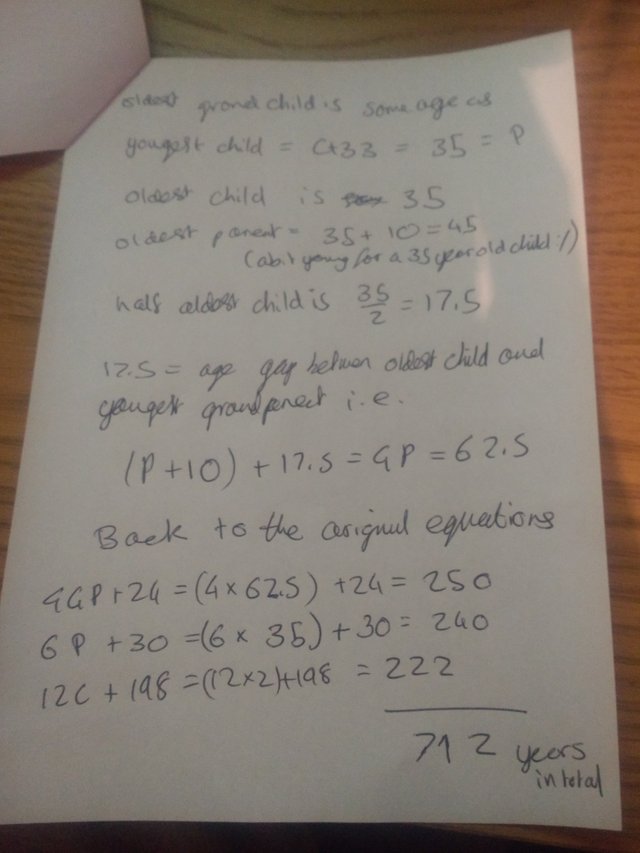 oldest grand child is same age as
yougest child = C+33 = 35 = P
oldest child is 35
oldest parent = 35 + 10 = 45
(abit young for a 35 year old child :/)
half oldest child is 35/2 = 17.5
17.5 = age gap between oldest child and
yougest grandparent i.e.
(P+10) + 17.5 = GP = 62.5
Back to the original equations
4GP+24 = (4 x 62.5) +24 = 250
6P +30 = (6 x 35) + 30 = 240
12C + 198 = (12x2)+198 = 222
712 years
in total